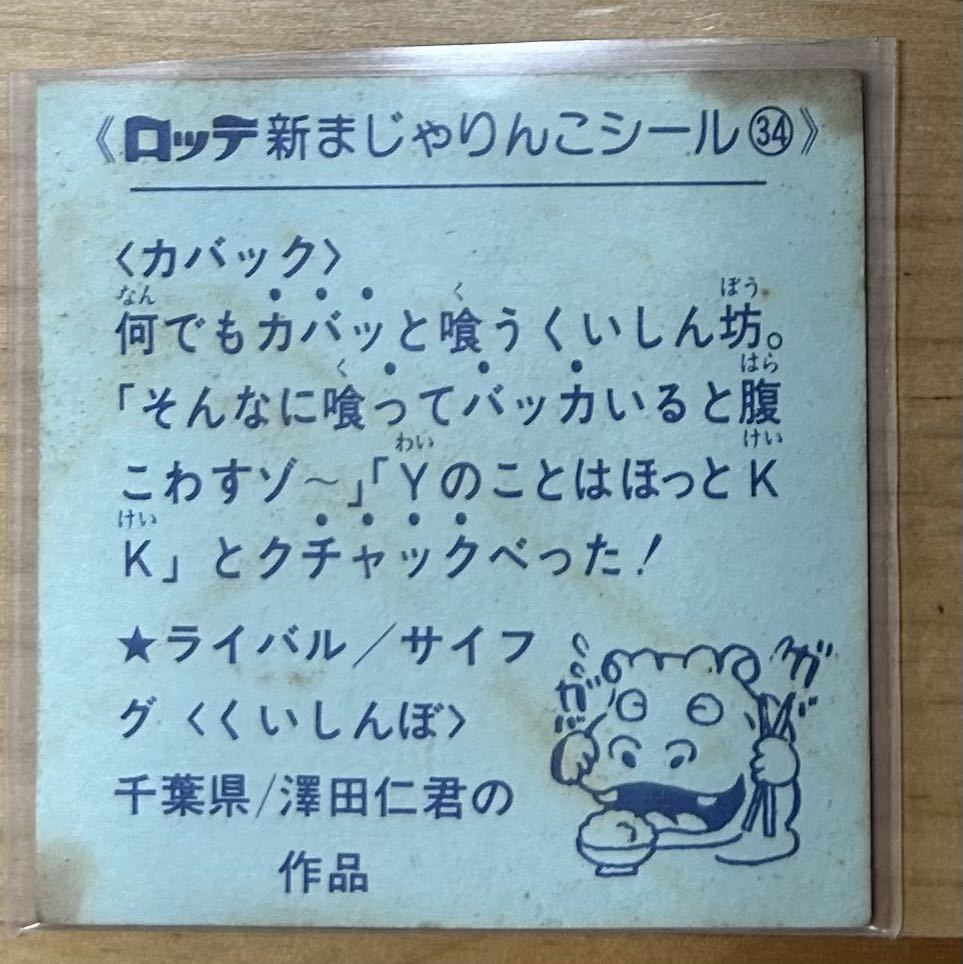 《ロッテ新まじゃりんこシール㉞》
〈カバック〉
何でもカバッと喰うくいしん坊。
「そんなに喰ってバッカいると腹
こわすゾ～」「YのことはほっとK
K」とクチャックべった!
★ライバル/サイフ
グ〈くいしんぼ〉
千葉県/澤田仁君の
作品
ガガ